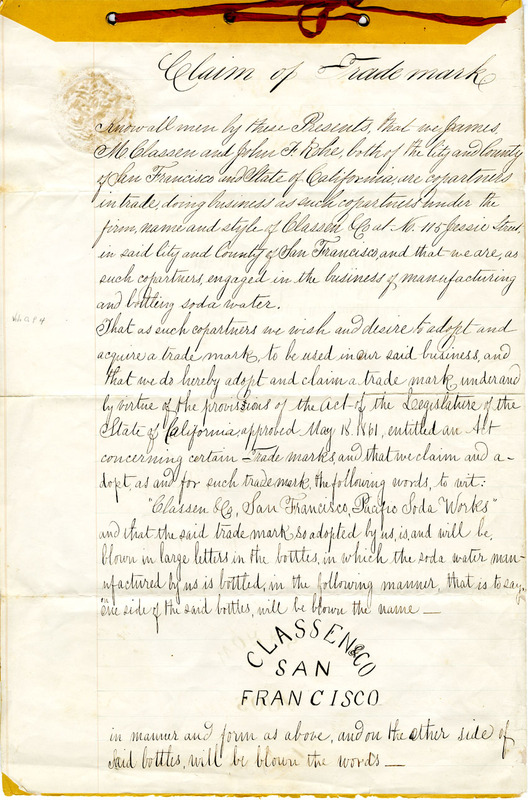 Claim of Trade mark
Know all men by these Presents, that we James
M. Classen and John F. Rohe, both of the City and County
of San Francisco and State of California, are copartners
in trade, doing business as such copartners under the
firm, name and style of Classen & Co at No. 115 Jessie Street,
in said City and County of San Francisco, and that we are, as
such copartners, engaged in the business of manufacturing
and bottling soda water.
That as such copartners we wish and desire to adopt and
acquire a trade mark, to be used in our said business, and
that we do hereby adopt and claim a trade mark under and
by virtue of the provisions of the Act of the Legislature of the
State of California, approved May 18. 1861, entitled an Act
concerning certain Trade marks, and that we claim and a-
dopt, as and for such trade mark, the following words, to wit:
"Classen & Co, San Francisco, Pacific Soda Works"
and that the said trade mark so adopted by us, is, and will be,
blown in large letters in the bottles, in which the soda water man-
ufactured by us is bottled, in the following manner, that is to say,
On one side of the said bottles, will be blown the name —
CLASSEN & CO
SAN
FRANCISCO
in manner and form as above, and on the other side of
said bottles, will be blown the words —